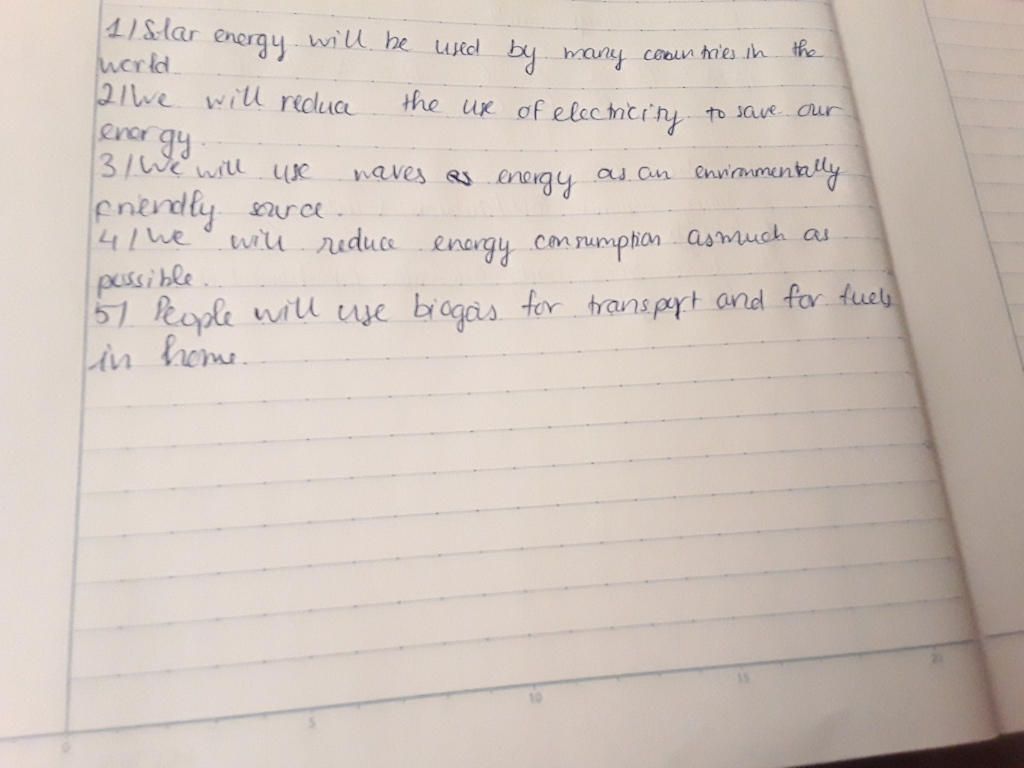 1/ Solar energy will be used by many countries in the
world
2/ We will reduce the use of electricity to save our
energy.
3/ We will use waves as energy as an environmentally
friendly source.
4/ We will reduce energy consumption as much as
possible.
5/ People will use biogas for transport and for fuels
in home.
0 5 10 15 20